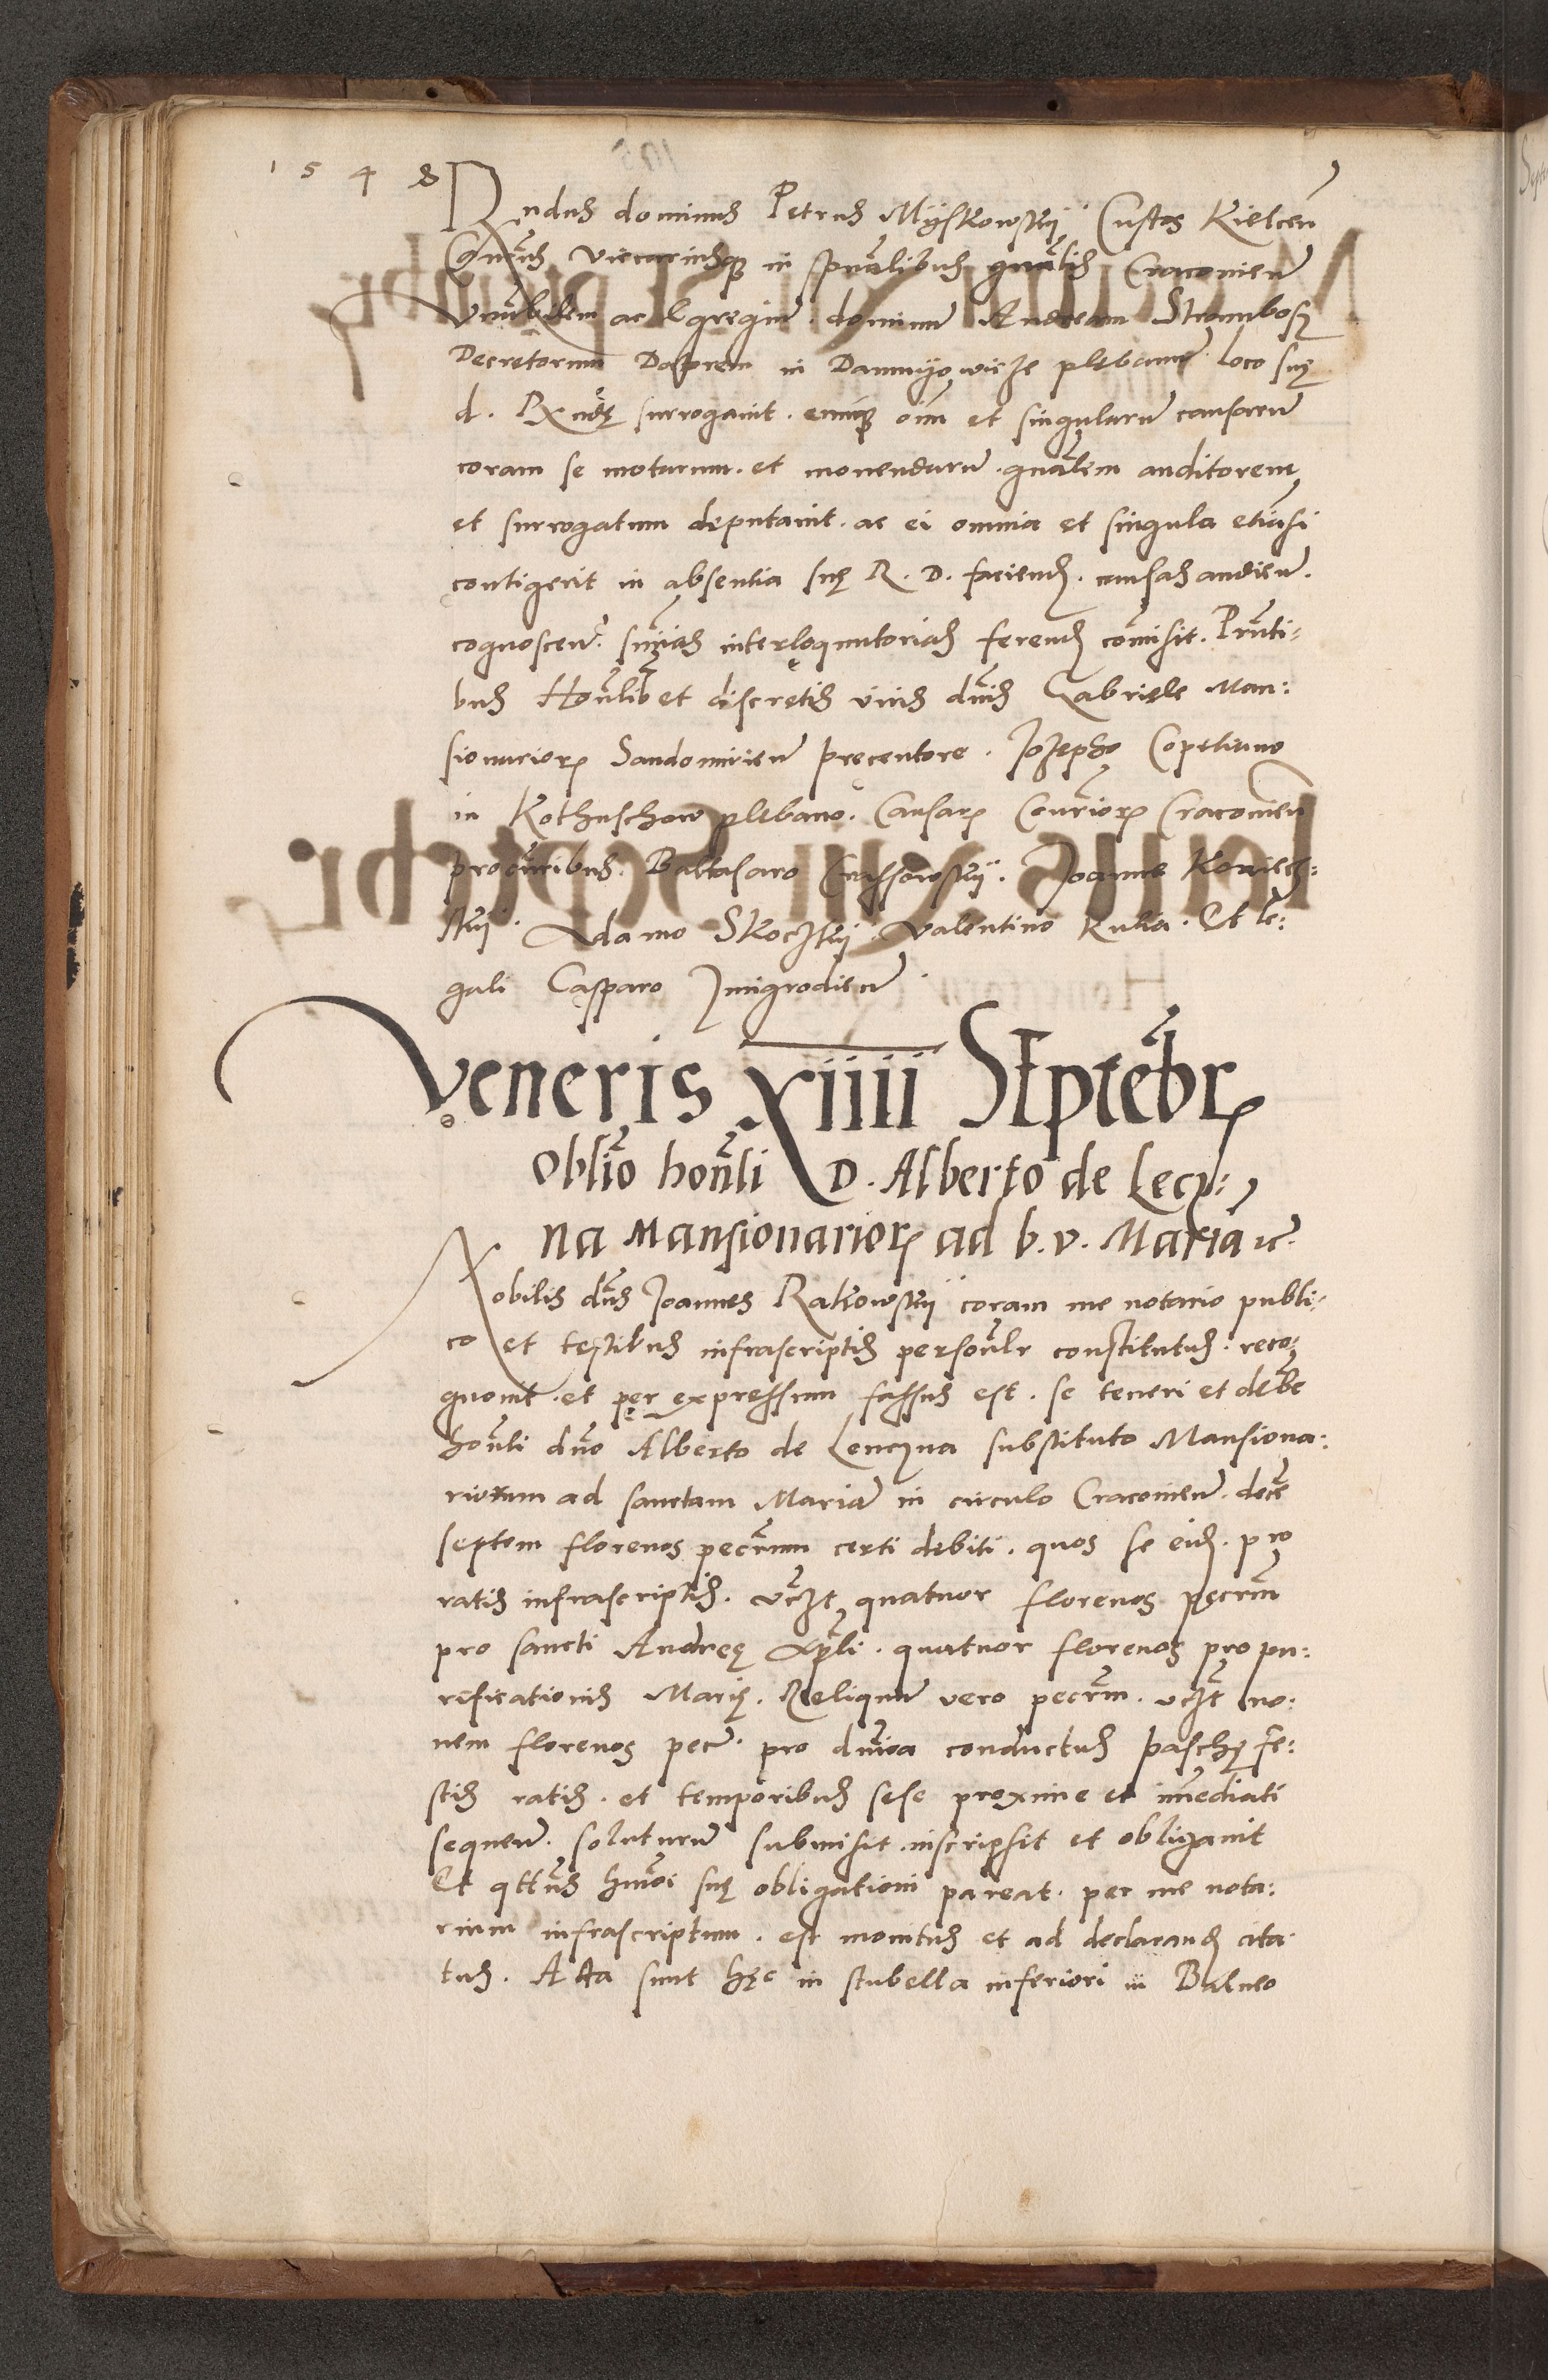 1 5 4 8
Rndus dominus Petrus Myskowskij Custos Kielceñ
Canõcus Vicariusque in spũalibus gñalis Cracovieñ
Vnũbilem ac Egregiũ dominũ Andream
Decretorum Doctorem in plebanũ loco suę
d. Rxndę surrogavit. eumque oĩm et singularũ causarũ
coram se motarum. et movendarũ. gñalem auditorem
et surrogatum deputavit. ac ei omnia et singula etiãsi
contigerit in absentia suę R. D. faciend. causas audieñ.
cognosceñ. sñias interloquutorias ferend cõmisit. Pñti-
bus Honlib et discretis viris dñis Gabriele Man:
sionarior Sandomirieñ precentore. Jozepho Copetiano
in Kothuschow plebano. Causar Conr̃ior Cracovieñ
procuribus. Baltasaro Crassowskij. Joanne Koniecz:
skij. Adamo Skoczkij. Valentino Kulia. Et le:
gali Casparo Jmigrodieñ.
Veneris xiiii SEptẽbr
Oblĩo honli D. Alberto de Lecz:
na Mansionarior ad b. v. Mariã etc.
Nobilis dñs Joannes Rakowskij coram me notario publi:
co et testibus infrascriptis personlr constitutus. reco:
gnovit. et per expressum fassus est. se teneri et debe
honli dño Alberto de Lenczna substituto Mansiona:
riorum ad sanctam Mariã in circulo Cracovieñ. decẽ
septem florenos pecr̃um certi debiti. quos se eid. pro
ratis infrascriptis. vczt quatuor florenos pecr̃m
pro sancti Andreę Apli. quatuor florenos pro pu:
rificationis Marię. Reliquũ vero pecr̃m. vczt no:
vem florenos pecũ. pro dñica conductus paschę fe:
stis ratis. et temporibus sese proxime et imediati
sequeñ. soluturũ submisit. inscripsit et obligavit
Et qttus hmõi suę obligationi pareat. per me nota:
rium infrascriptum. est monitus et ad declarand cita
tus. Acta sunt hęc in stubella inferiori in Balneo